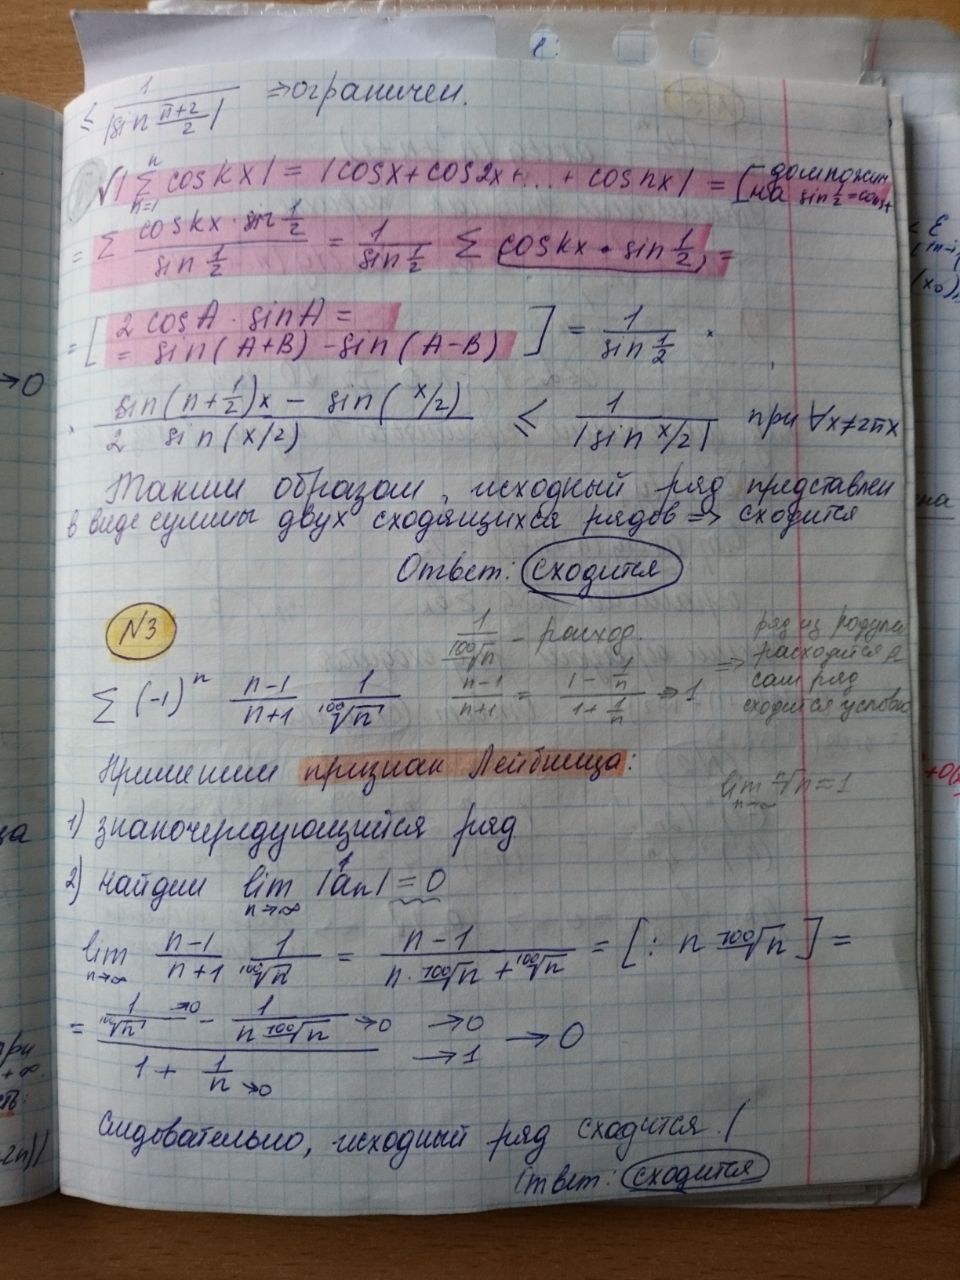 ≤ 1/|sin (π+2)/2| ⇒ ограничен.
√ |∑_{n=1}^{n} cos kx| = |cos x + cos 2x + ... + cos nx| = [домножим на sin 1/2 = const
= ∑ (cos kx · sin 1/2)/(sin 1/2) = 1/(sin 1/2) ∑ cos kx · sin 1/2 =
= [2 cos A · sin A = = sin(A+B) - sin(A-B)] = 1/(sin 1/2) ·
· (sin(n+1/2)x - sin(x/2))/(2 sin(x/2)) ≤ 1/|sin x/2| при ∀x≠2πk
Таким образом, исходный ряд представлен
в виде суммы двух сходящихся рядов => сходится
Ответ: сходится
N3
1/¹⁰⁰√n - расход.
∑ (-1)^n (n-1)/(n+1) 1/¹⁰⁰√n
(n-1)/(n+1) = (1 - 1/n)/(1 + 1/n) → 1
⇒ ряд из модулей
расходится а
сам ряд
сходится условно
Применим признак Лейбница:
lim_{n→∞} ⁿ√n = 1
1) знакочередующийся ряд
2) найдем lim_{n→∞} |an| = 0
lim_{n→∞} (n-1)/(n+1) 1/¹⁰⁰√n = (n-1)/(n·¹⁰⁰√n + ¹⁰⁰√n) = [: n ¹⁰⁰√n] =
= (1/¹⁰⁰√n →0 - 1/(n ¹⁰⁰√n) →0)/(1 + 1/n →0) →0 →1 → 0
Следовательно, исходный ряд сходится.
Ответ: сходится